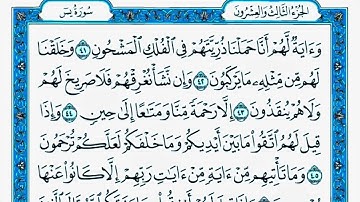 الجزء الثالث والعشرون سورة يس
وَءَايَةٌ لَّهُمْ أَنَّا حَمَلْنَا ذُرِّيَّتَهُمْ فِي ٱلْفُلْكِ ٱلْمَشْحُونِ ٤١ وَخَلَقْنَا
لَهُم مِّن مِّثْلِهِۦ مَا يَرْكَبُونَ ٤٢ وَإِن نَّشَأْ نُغْرِقْهُمْ فَلَا صَرِيخَ لَهُمْ
وَلَا هُمْ يُنقَذُونَ ٤٣ إِلَّا رَحْمَةً مِّنَّا وَمَتَٰعًا إِلَىٰ حِينٍ ٤٤ وَإِذَا
قِيلَ لَهُمُ ٱتَّقُوا۟ مَا بَيْنَ أَيْدِيكُمْ وَمَا خَلْفَكُمْ لَعَلَّكُمْ تُرْحَمُونَ
٤٥ وَمَا تَأْتِيهِم مِّنْ ءَايَةٍ مِّنْ ءَايَٰتِ رَبِّهِمْ إِلَّا كَانُوا۟ عَنْهَا